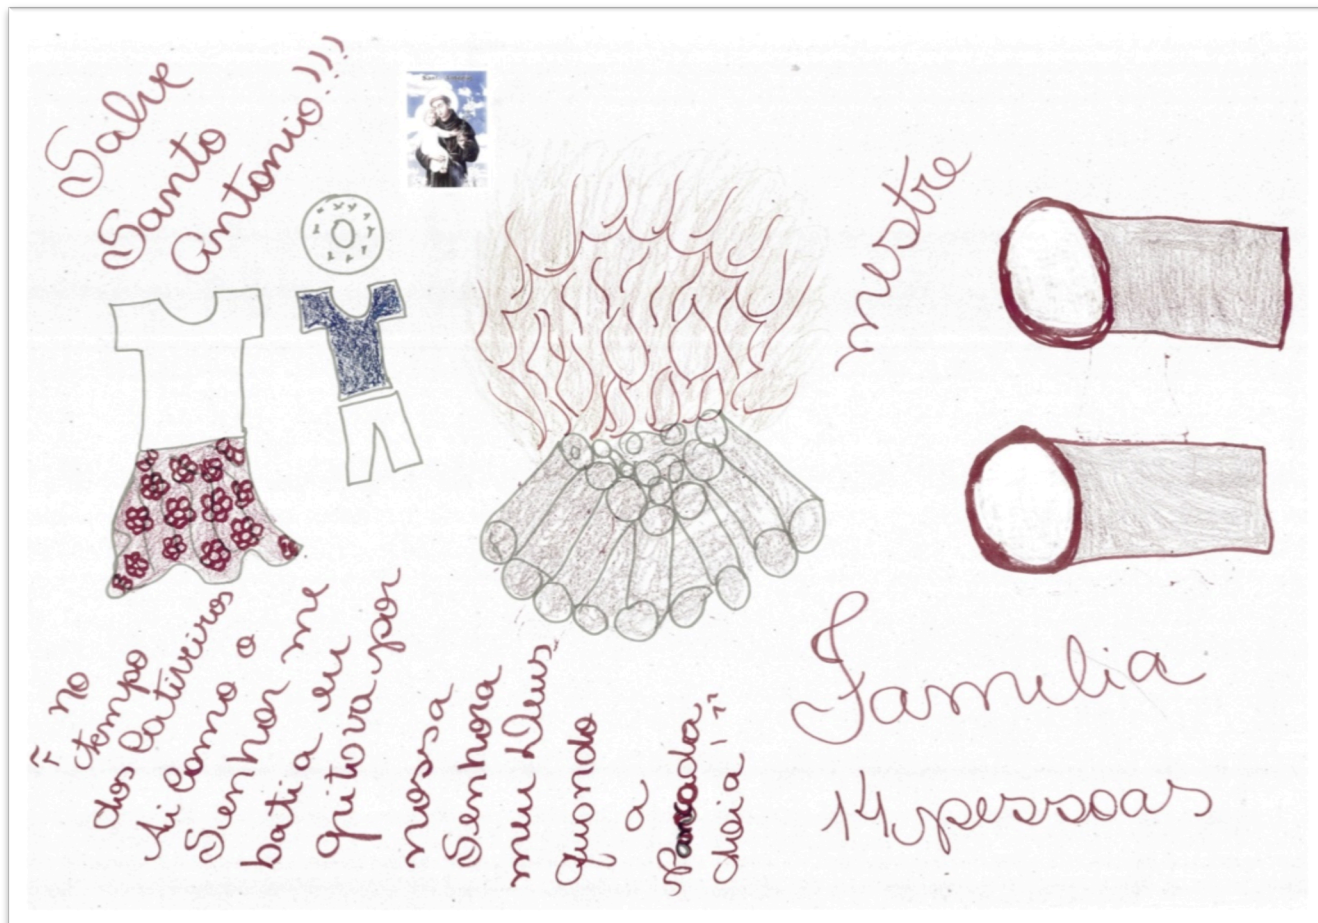 Salve
Santo
Antonio!!!
mestre
" no
tempo
dos Cativeiros
Ai Como o
Senhor me
batia eu
gritava por
nossa
Senhora
meu Deus
quando
a
Pancada
doia!"
Familia
14 pessoas